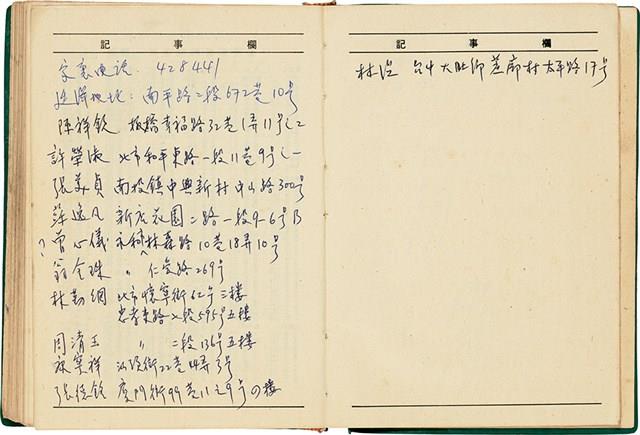 記事欄
家裏電話. 428441
延陽地址: 南平路二段672巷10号
陳祥欽 板橋幸福路32巷1弄11号之2
許榮淑 北市和平東路一段11巷9号之一
張美貞 南投鎮中興新村中山路300号
薛逸凡 新店花園二路一段9-6号B
? 曾心儀 永和林森路10巷18弄10号
翁金珠 〃 仁愛路269号
林勤綱 北市懷寧街62号三樓
忠孝東路 段595号五樓
周清玉 〃 二段136号五樓
寞祥 街22巷44弄3号
張德銘 廈門街99巷11之9号の樓
記事欄
林 台中大肚鄉蔗廍村太平路17号